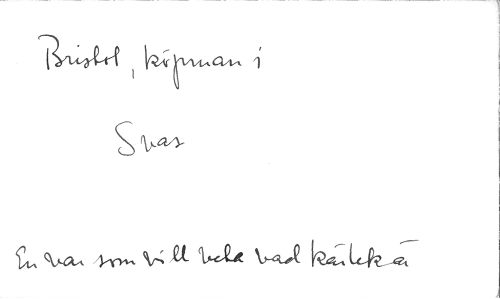 Bristol, köpman i
Svar
En var som vill veta vad kärlek är